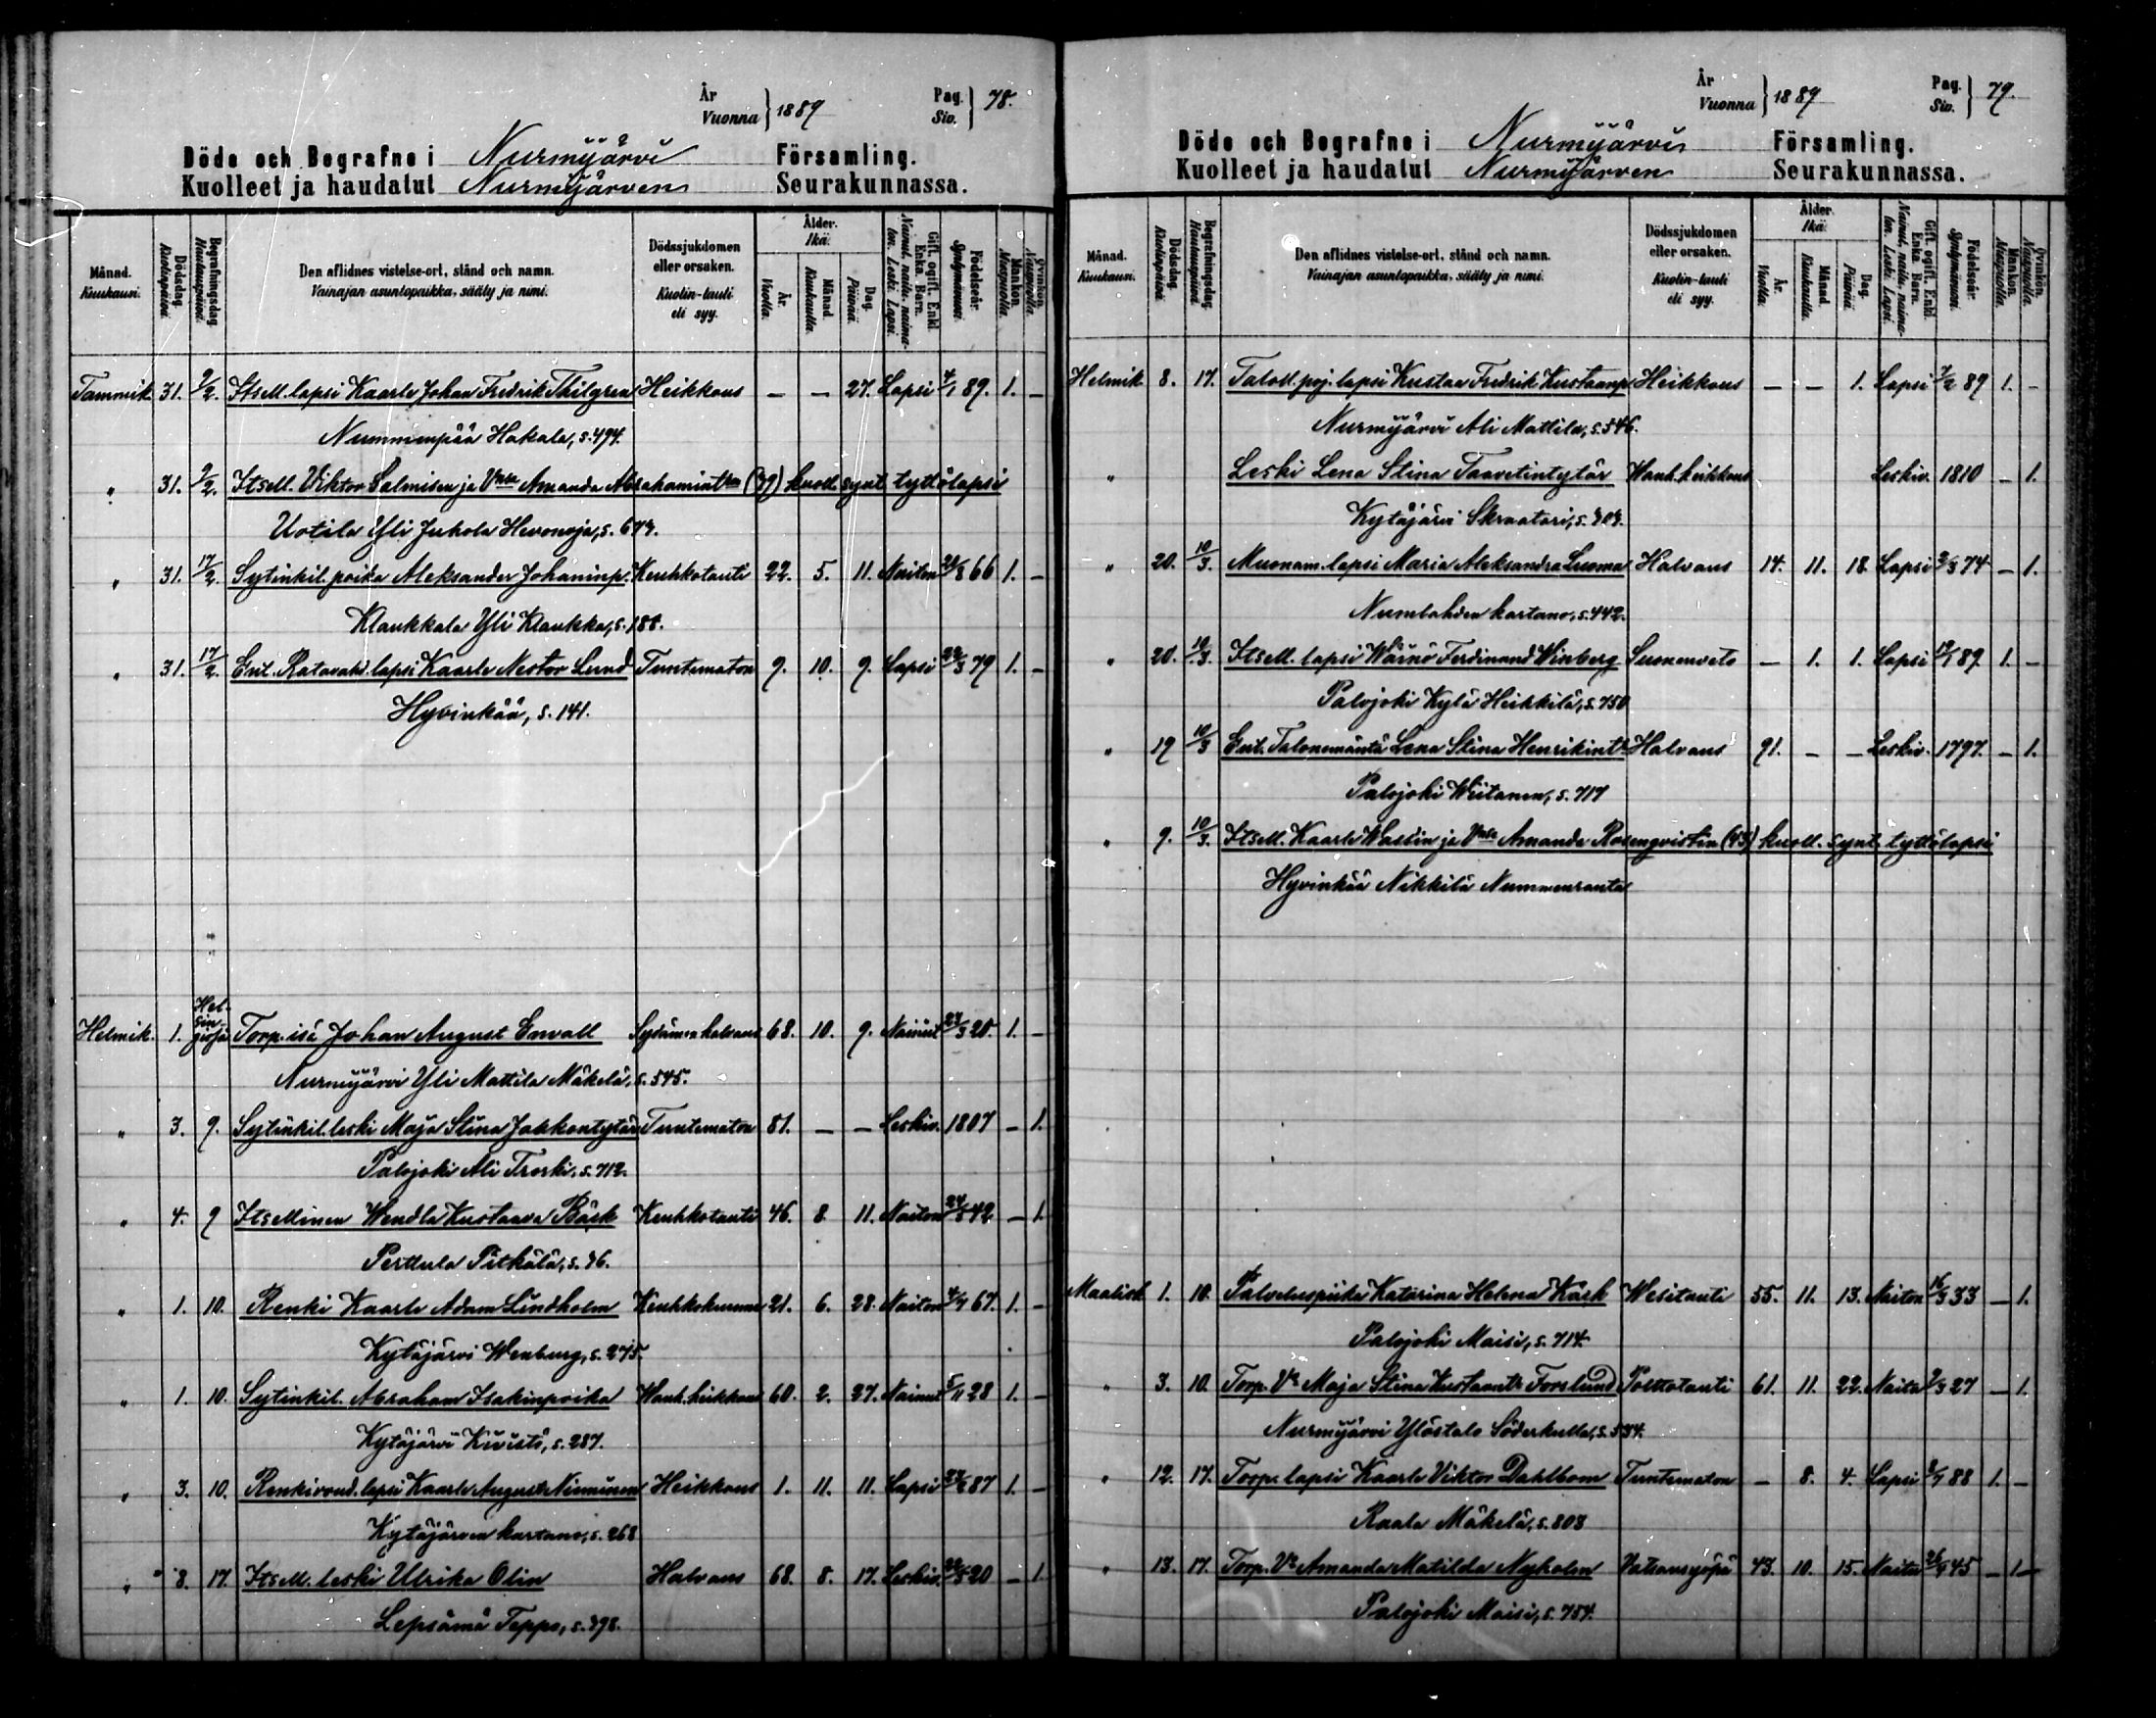 År
Vuonna } 1889
Pag.
Siv. } 78.
Döde och Begrafne i Nurmijärvi Församling.
Kuolleet ja haudatut Nurmijärven Seurakunnassa.
Månad. Kuukausi.
Dödsdag. Kuolinpäivä.
Begrafningsdag. Hautauspäivä.
Den aflidnes vistelse-ort, stånd och namn.
Vainajan asuntopaikka, sääty ja nimi.
Dödssjukdomen eller orsaken.
Kuolin-tauti eli syy.
Ålder. Ikä:
År. Vuotta.
Månad. Kuukautta.
Dag. Päivää.
Gift, ogift, Enkl. Enka. Barn.
Nainut, naitu, naimaton. Leski. Lapsi.
Födelseår. Syntymävuosi.
Mankön. Miespuolia.
Qvinkön. Naispuolia.
Tammik. 31. 9/2. Itsell. lapsi Kaarle Johan Fredrik Thilgren Heikkous — — 27. Lapsi 4/1 89. 1. —
Nummenpää Hakala, s. 494.
" 31. 9/2. Itsell. Viktor Salmisen ja Vmsa Amanda Abrahamintrn (39) kuoll. synt. tyttölapsi
Uotila Yli Juhola Hevonoja, s. 673.
" 31. 17/2. Sytinkil. poika Aleksander Johaninp. Keuhkotauti 22. 5. 11. Naiton 20/8 66 1. —
Klaukkala Yli Klaukka, s. 188.
" 31. 17/2. Ent. Ratavahd. lapsi Kaarle Nestor Lund Tuntematon 9. 10. 9. Lapsi 22/3 79 1. —
Hyvinkää, s. 141.
Helmik. 1. Helsingissä Torp. isä Johan August Envall Sydämen halvaus 68. 10. 9. Nainut 23/3 20. 1. —
Nurmijärvi Yli Mattila Mäkelä, s. 545.
" 3. 9. Sytinkil. leski Maja Stina Jaakontytär Tuntematon 81. — — Leskiv. 1807 — 1.
Palojoki Ali Troski, s. 712.
" 4. 9 Itsellinen Wendla Kustaava Bäck Keuhkotauti 46. 8. 11. Naiton 24/5 42 — 1.
Perttula Pitkälä, s. 36.
" 1. 10. Renki Kaarle Adam Lindholm Keuhkokuume 21. 6. 28. Naiton 4/7 67. 1. —
Kytäjärvi Wenburg, s. 275.
" 1. 10. Sytinkil. Abraham Isakinpoika Wanh. heikkous 60. 2. 27. Nainut 5/11 28 1. —
Kytäjärvi Kivistö, s. 287.
" 3. 10. Renkivoud. lapsi Kaarle August Nieminen Heikkous 1. 11. 11. Lapsi 22/2 87 1. —
Kytäjärven kartano, s. 268
" 8. 17. Itsell. leski Ulrika Olin Halvaus 68. 8. 17. Leskiv. 22/5 20 — 1.
Lepsämä Teppo, s. 398.
År
Vuonna } 1889
Pag.
Siv. } 79.
Döde och Begrafne i Nurmijärvi Församling.
Kuolleet ja haudatut Nurmijärven Seurakunnassa.
Månad. Kuukausi.
Dödsdag. Kuolinpäivä.
Begrafningsdag. Hautauspäivä.
Den aflidnes vistelse-ort, stånd och namn.
Vainajan asuntopaikka, sääty ja nimi.
Dödssjukdomen eller orsaken.
Kuolin-tauti eli syy.
Ålder. Ikä:
År. Vuotta.
Månad. Kuukautta.
Dag. Päivää.
Gift, ogift, Enkl. Enka. Barn.
Nainut, naitu, naimaton. Leski. Lapsi.
Födelseår. Syntymävuosi.
Mankön. Miespuolia.
Qvinkön. Naispuolia.
Helmik. 8. 17. Taloll. poj. lapsi Kustaa Fredrik Kustaanp. Heikkous — — 1. Lapsi 7/2 89 1. —
Nurmijärvi Ali Mattila, s. 546.
" Leski Lena Stina Taavetintytär Wanh. heikkous Leskiv. 1810 — 1.
Kytäjärvi Skraatari, s. 303.
" 20. 10/3. Muonam. lapsi Maria Aleksandra Luoma Halvaus 14. 11. 18. Lapsi 2/3 74 — 1.
Numlahden kartano, s. 442.
" 20. 10/3. Itsell. lapsi Wäinö Ferdinand Winberg Sumenveto — 1. 1. Lapsi 19/1 89. 1. —
Palojoki Kylä Heikkilä, s. 750
" 19 10/3 Ent. Talonemäntä Lena Stina Henrikintr. Halvaus 91. — — Leskiv. 1797. — 1.
Palojoki Wiitanen, s. 717
" 9. 10/3. Itsell. Kaarle Wastin ja Vmsa Amanda Rosenqvistin (43) kuoll. synt. tyttölapsi
Hyvinkää Nikkilä Nummenranta
Maalisk. 1. 10. Palveluspiika Katarina Helena Käck Wesitauti 55. 11. 13. Naiton 16/3 33 — 1.
Palojoki Maisi, s. 714.
" 3. 10. Torp. Vo Maja Stina Kustaantr. Forslund Polttotauti 61. 11. 22. Naitu 9/3 27 — 1.
Nurmijärvi Ylöstalo Söderkulla, s. 534.
" 12. 17. Torp. lapsi Kaarle Viktor Dahlbom Tuntematon — 8. 4. Lapsi 8/7 88 1. —
Raala Mäkelä, s. 803
" 13. 17. Torp. Vo Amanda Matilda Nyholm Vatsansyöpä 43. 10. 15. Naitu 26/4 45 — 1 —
Palojoki Maisi, s. 754.